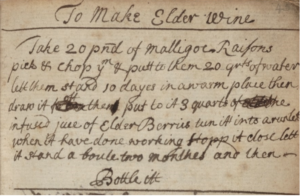 To Make Elder Wine
Take 20 pnd of Malligoe Raisons
pick & Chop ym & putt to them 20 qrts of water
lett them stand 10 dayes in a warm place then
dran it then put to it 3 quarts of the
infused juse of Elder Borris tun itt into a
when it have done working stopp it close lett
it stand a boute two monthes and then
Bottle itt